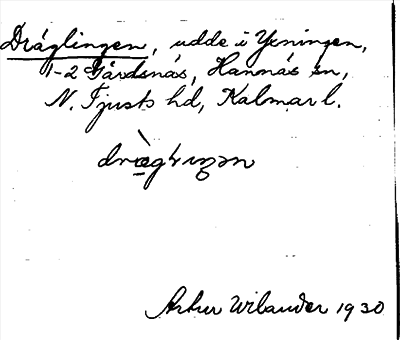 Dráglingen, udde i Yxningen,
1-2 Gårdsnäs, Hannäs sn,
N. Tjusts hd, Kalmar l.
Artur Wilander 1930